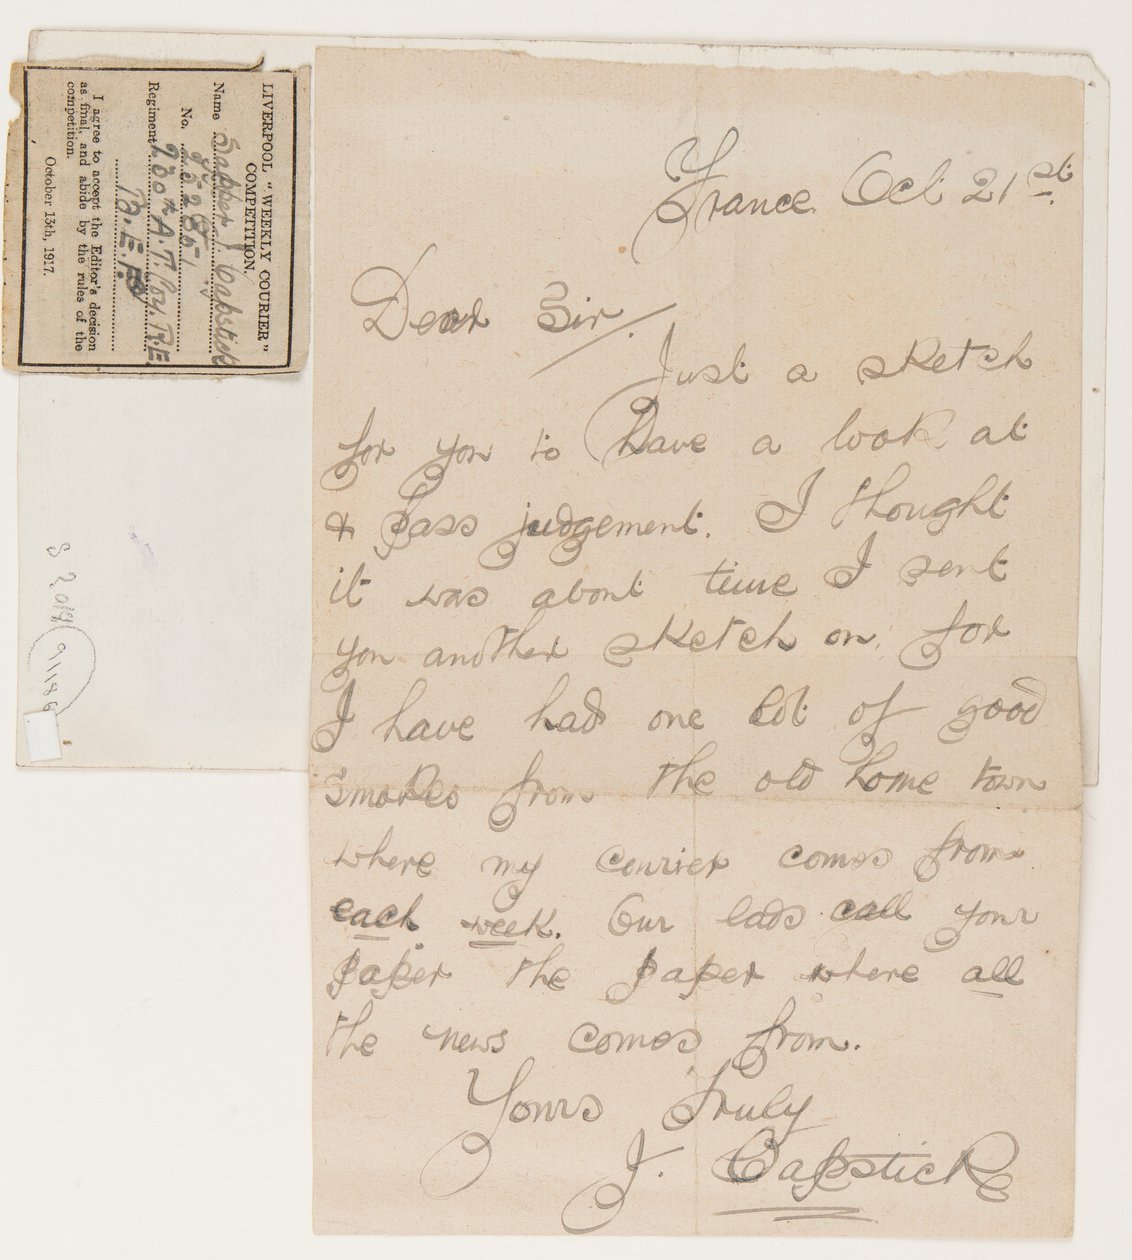 LIVERPOOL "WEEKLY COURIER"
COMPETITION.
Name Sapper J Capstick
No.
Regiment 230th A.T. Coy. R.E.
B.E.F.
I agree to accept the Editor's decision
as final, and abide by the rules of the
competition.
October 13th, 1917.
France Oct 21st.
Dear Sir.
Just a sketch
for you to Have a look at
& pass judgement. I thought
it was about time I sent
you another sketch on, for
I have had one lot of good
smokes from the old home town
where my courier comes from
each week. Our lads call your
paper the paper where all
the news comes from.
Yours Truly
J. Capstick